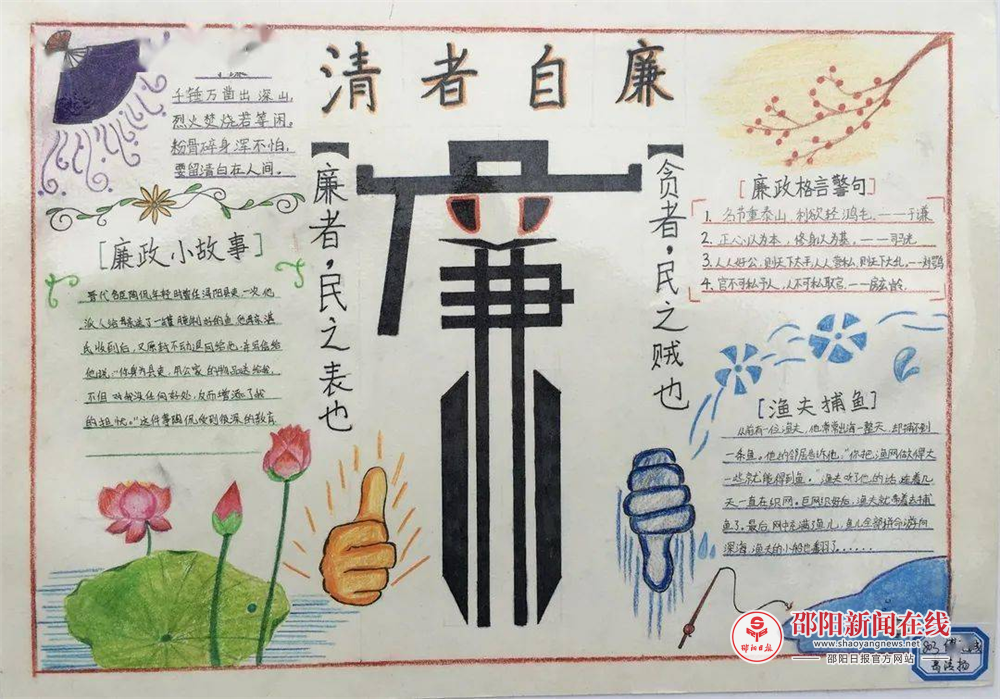 清者自廉
千锤万凿出深山,
烈火焚烧若等闲。
粉骨碎身浑不怕,
要留清白在人间。
[廉政小故事]
晋代名臣陶侃年轻时曾任浔阳县吏。一次,他
派人给母亲送了一罐腌制好的鱼。他母亲湛
氏收到后,又原封不动退回给他,并写信给
他说:“你身为县吏,用公家的物品送给我,
不但对我没任何好处,反而增添了我
的担忧。”这件事陶侃受到很深的教育
【廉者,民之表也
廉
【贪者,民之贼也
[廉政格言警句]
1. 名节重泰山,利欲轻鸿毛。——于谦
2. 正心以为本,修身以为基。——司马光
3. 人人好公,则天下太平;人人营私,则天下大乱。——刘鹗
4. 官不可私于人,人不可私取官。——房玄龄
[渔夫捕鱼]
从前有一位渔夫,他常常出海一整天,却捕不到
一条鱼。他的邻居告诉他:“你把渔网做得大
一些就能得到鱼。”渔夫听了他的话,连着几
天一直在织网。巨网织好后,渔夫就带着去捕
鱼了。最后,网中充满了鱼儿,鱼儿全部拼命游向
深海,渔夫的小船也翻了......
邵阳新闻在线
www.shaoyangnews.net
邵阳日报官方网站
邵阳日报